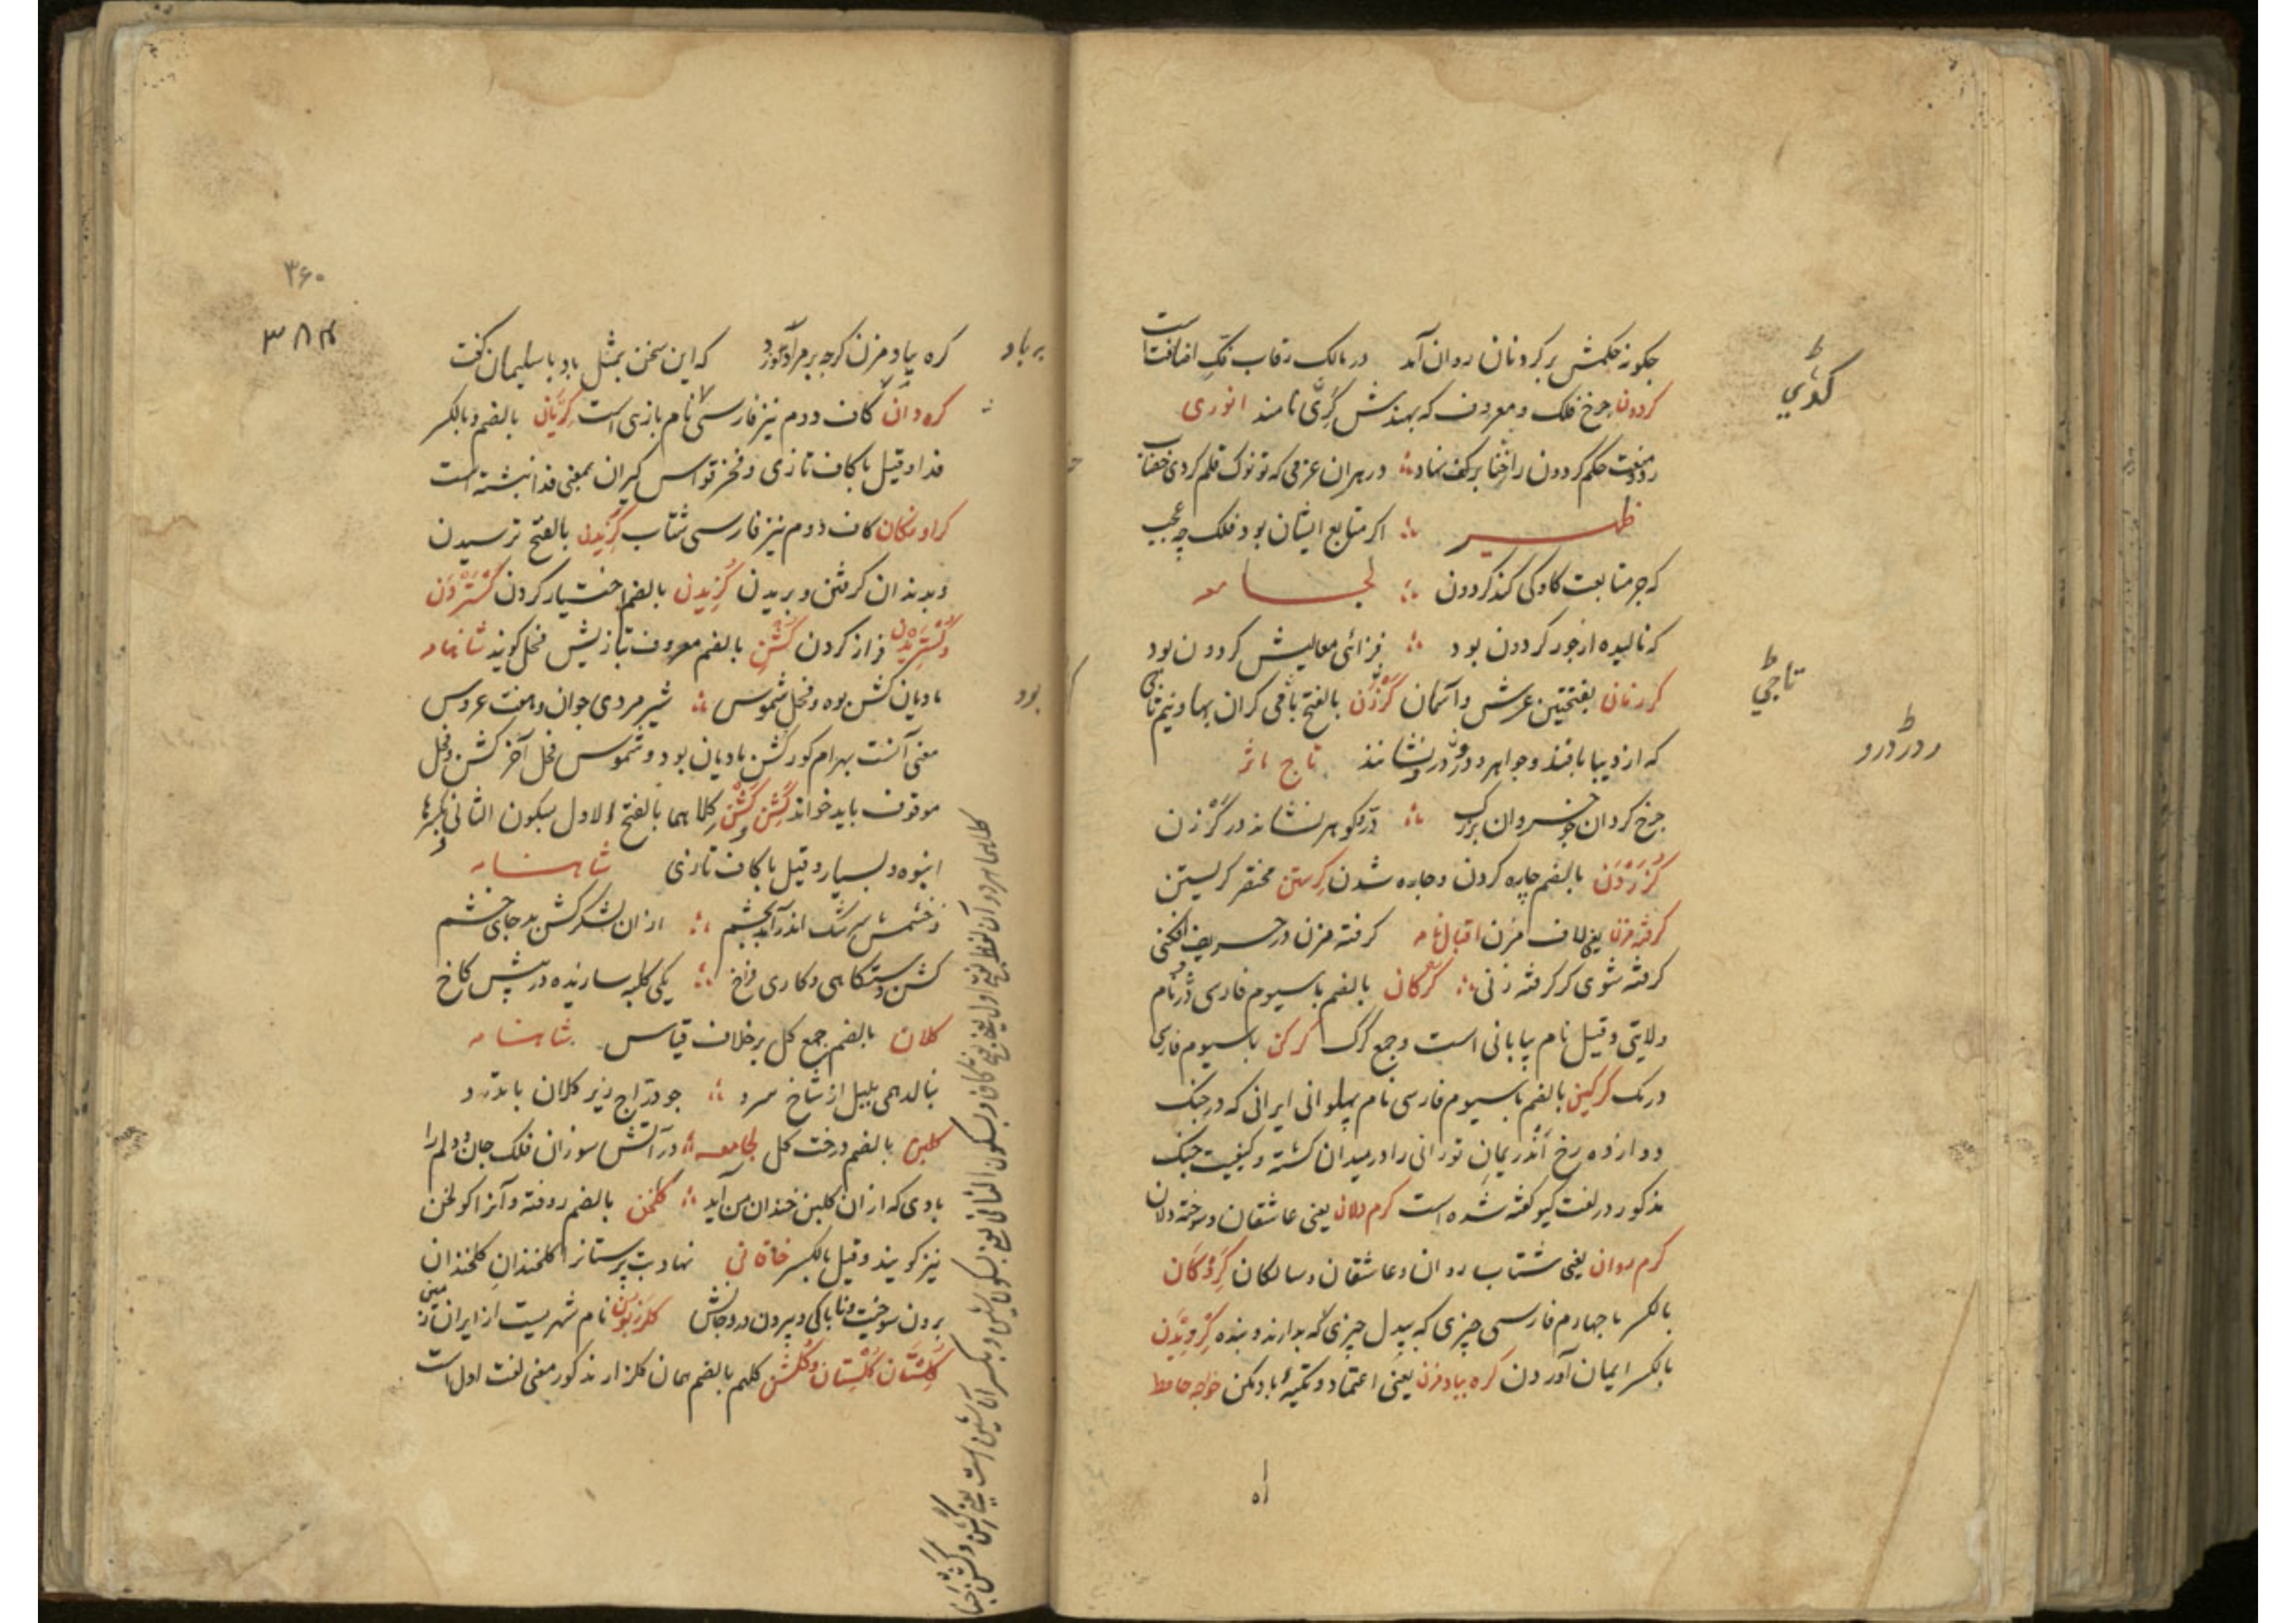 چکونه حکمش بر کردنان روان آمد در مالک رقاب تک اضافت است
کردون چرخ فلک و معروف که بهندش کری نامند انوری
حکم کردون را نهاد در هران عزمی که تو نوک قلم کردی خضاب
ظهیر اکر متابع ایشان بود فلک چه عجب
که جز متابعت کاو کی کند کردون لجامعه
که نالیده از جور کردون بود معالیش کردون بود
کرزمان بفتحتین عرش و آسمان کرزن بالفتح کران بها و نیم تاجی
که از دیبا بافند و جواهر درو نشانند تاج ماثر
چرخ کردان چو خسروان بزرک در و کوهر نشاند در کرزن
کزردن بالضم چاره کردن و چاره شدن کرستن مختصر کریستن
کرفته مزن یعنی لاف مزن اقبال نامه کرفته مزن در حریف افکنی
کرفته شوی کر کرفته زنی کرکان بالضم با سیوم فارسی نام
ولایتی و قیل نام بیابانی است و جمع کرک کرکن با سیوم فارسی
کرکین بالضم با سیوم فارسی نام پهلوانی ایرانی که در جنک
دوازده رخ اندریمان تورانی را در میدان کشته و کیفیت جنک
مذکور در لغت کیو کفته شده است کرم دلان یعنی عاشقان و سوخته دلان
کرم روان یعنی شتاب روان و عاشقان و سالکان کروکان
بالکسر با چهارم فارسی چیزی که ببدل چیزی که بدارند و بنده کرویدن
بالکسر ایمان آوردن کره بباد مزن یعنی اعتماد و تکیه بباد مکن خواجه حافظ
تاجي
۳۶۰
۳۸۴
بر باد
بود
کره بباد مزن کرچه بر مراد وزد که این سخن بمثل باد با سلیمان کفت
کره دان کاف دوم نیز فارسی نام بازی است کریان بالضم و بالکسر
فدا و قیل با کاف تازی و فخر قواس کریان بمعنی فدا نبشته است
کاف دوم نیز فارسی شتاب کزیدن بالفتح ترسیدن
و بدندان کرفتن و بریدن کزیدن بالضم اختیار کردن کستردن
و کستریدن فراز کردن کشن بالضم معروف تازیش فحل کویند شاهنامه
مادیان کشن بوه و فحل شموس شیر مردی جوان و هفت عروس
معنی آنست بهرام کور کشن مادیان بود و شموس فحل آخر کشن و فحل
موقوف باید خواند کشن و کشن کلاهما بالفتح الاول بسکون الثانی و بکسرها
انبوه و بسیار و قیل با کاف تازی شاهنامه
ز خشمش سرشک اندر آمد بچشم از ان لشکر کشن بد جای خشم
کشن دستکاهی و کاری فراخ یکی کلبه سازیده در پیش کاخ
کلان بالضم جمع کل بر خلاف قیاس شاهنامه
بنالد همی بلبل از شاخ سرو چو دراج زیر کلان با تذرو
کلبن بالضم درخت کل لجامعه در آتش سوزان فلک جان و دلم را
بادی که از ان کلبن خندان من آید کلخن بالضم روفته و آنرا کولخن
نیز کویند و قیل بالکسر خاقانی
نام شهریست از ایران زمین
کلشتان کلستان و کلشن کلهم بالضم همان کلزار مذکور معنی لغت اول است